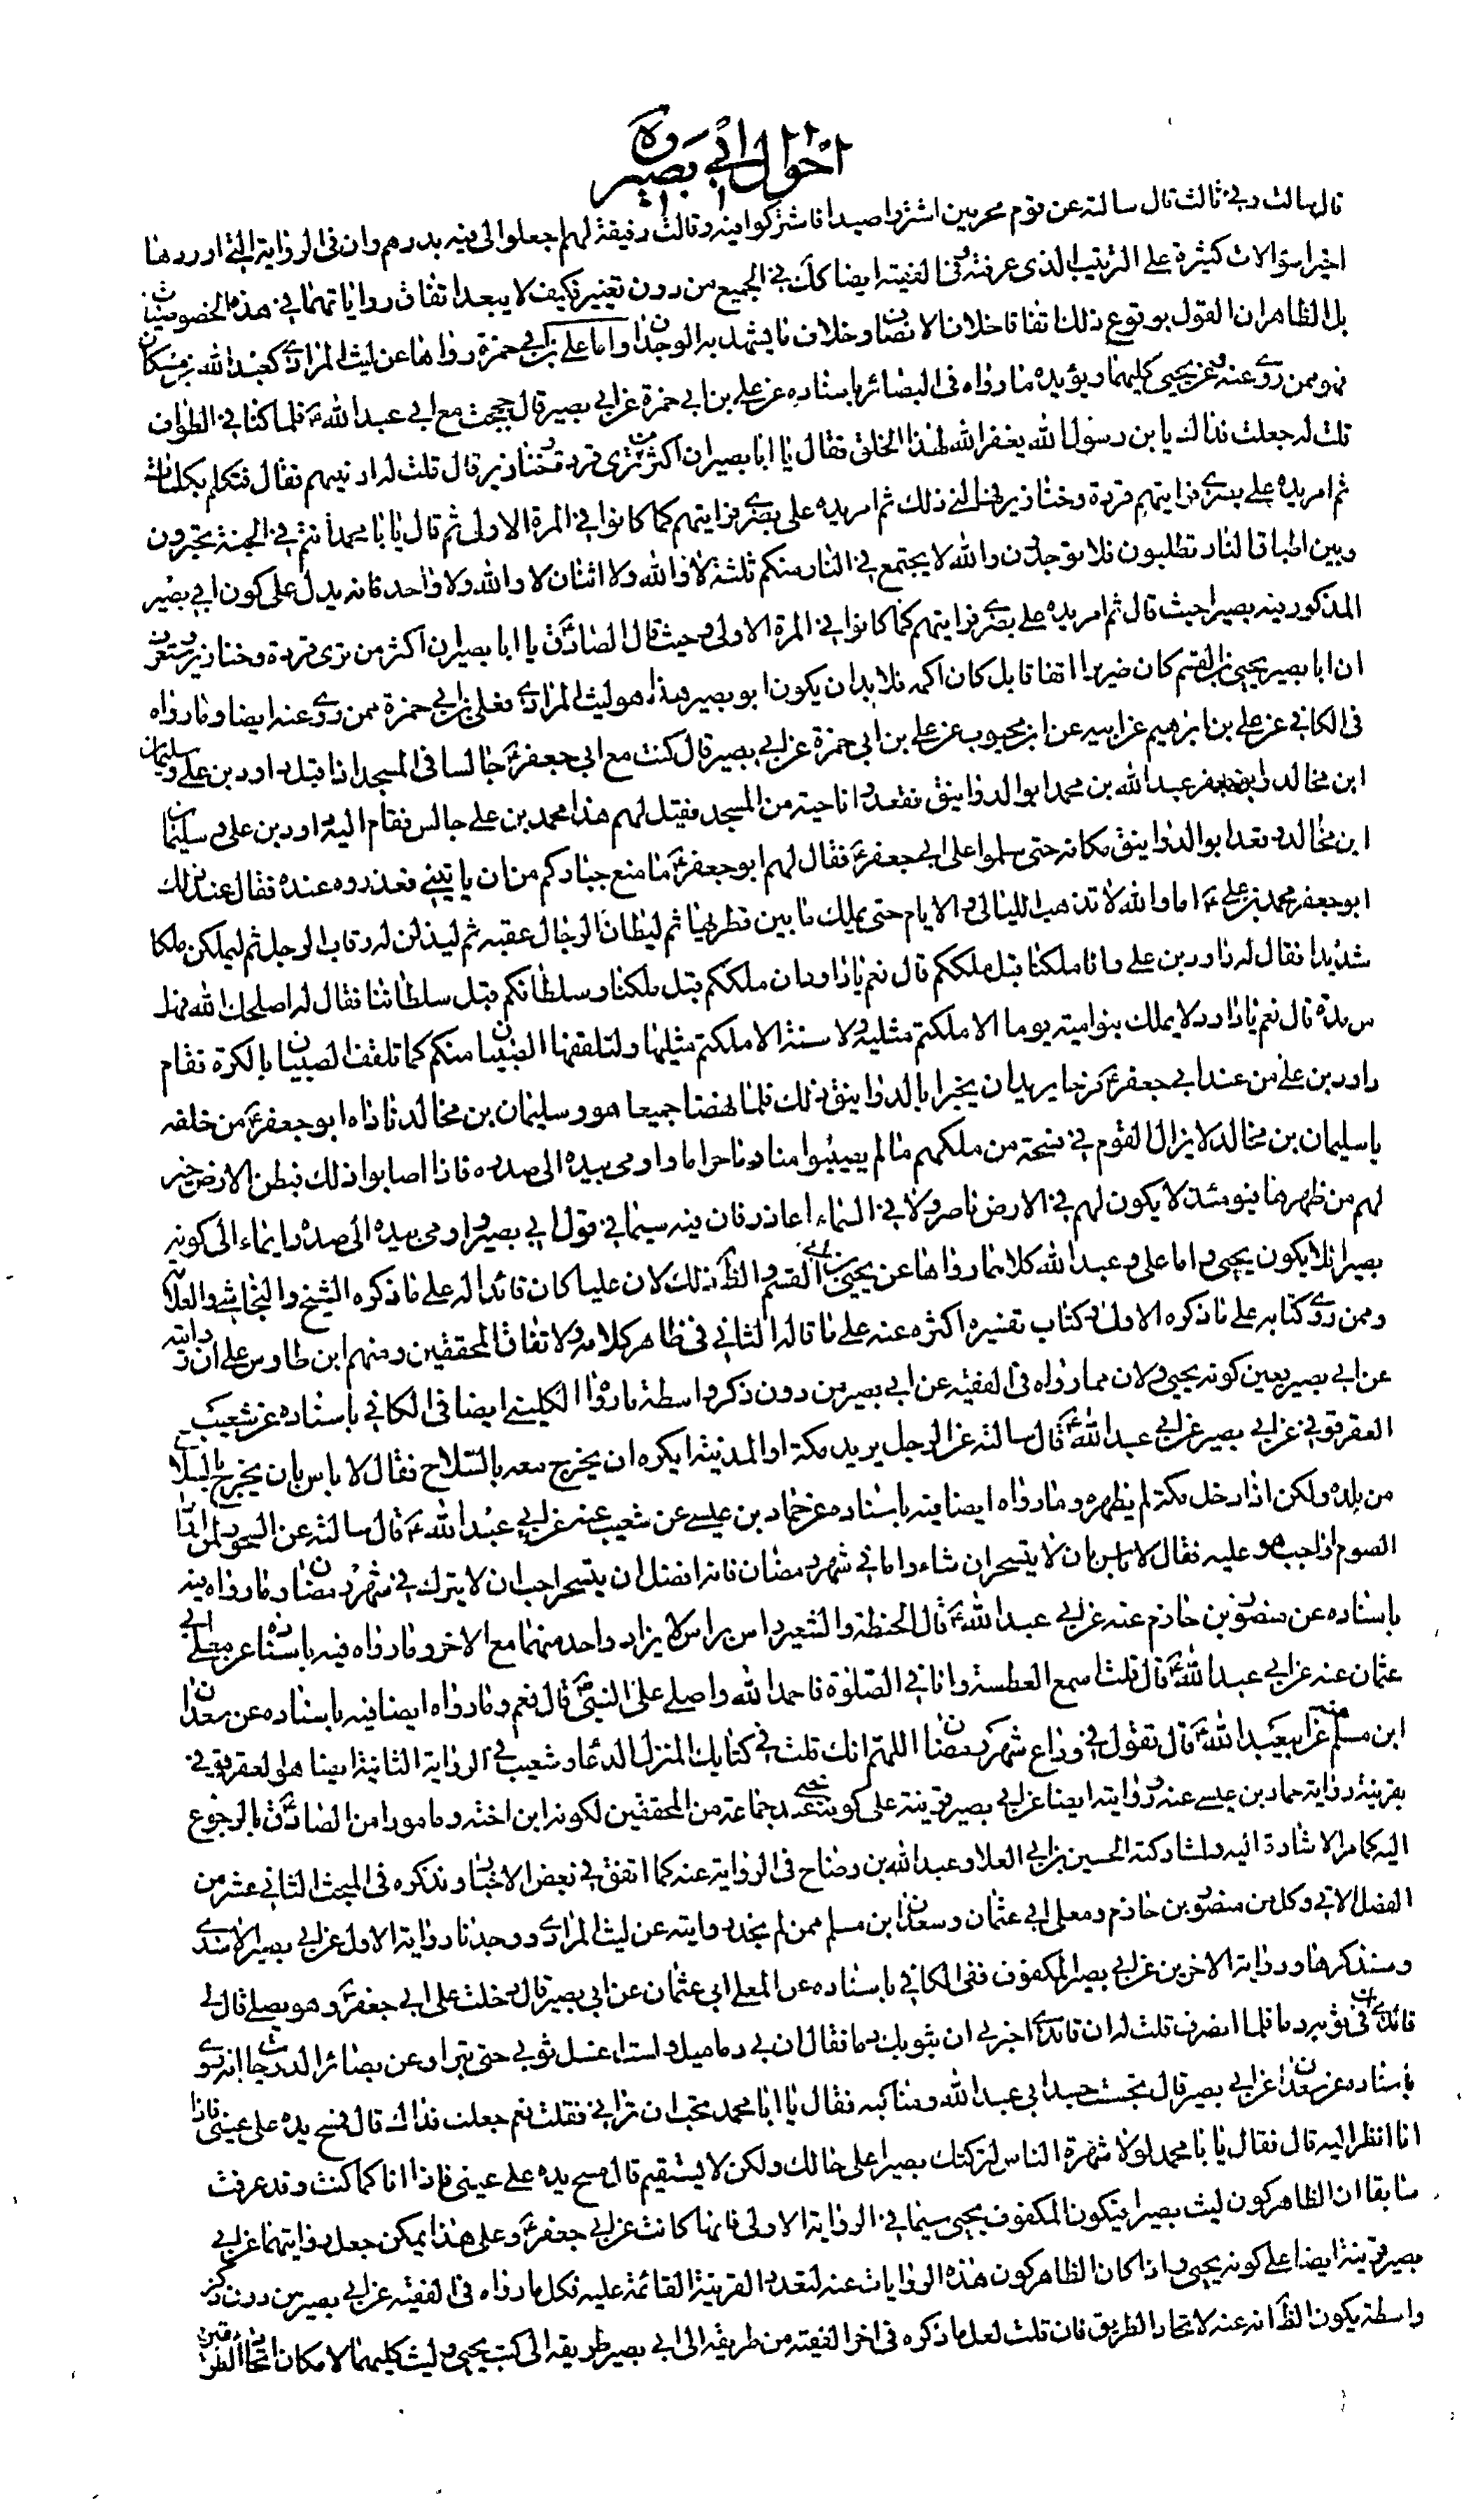 احوال ابي بصير ره
قال سالت وفي ثالث قال سالته عن قوم محرمين اشتروا صيدا فاشتركوا فيه وقالت رفيقة لهم اجعلوا لي فيه بدرهم وان في الرواية التي اوردها
اخيرا سؤالات كثيرة على الترتيب الذي عرفته وفي الفقيه ايضا كك في الجميع من دون تغيير فكيف لا يبعد اتفاق رواياتهما في هذه الخصوصيات
بل الظاهر ان القول بوقوع ذلك اتفاقا خلاف الانصاف وخلاف ما يشهد به الوجدان واما علي بن ابي حمزة رواها عن ليث المرادي كعبد الله بن مسكان
فهو ممن روى عنه وعن يحيى كليهما ويؤيده ما رواه في البصائر باسناده عن علي بن ابي حمزة عن ابي بصير قال حججت مع ابي عبد الله ع فلما كنا في الطواف
قلت له جعلت فداك يا بن رسول الله يغفر الله لهذا الخلق فقال يا ابا بصير ان اكثر من ترى قردة وخنازير قال قلت له ارنيهم فقال فتكلم بكلمات
ثم امر يده على بصري فرايتهم قردة وخنازير فهالني ذلك ثم امر يده على بصري فرايتهم كما كانوا في المرة الاولى ثم قال يا ابا محمد انتم في الجنة تحبرون
وبين اطباق النار تطلبون فلا توجدون والله لا يجتمع في النار منكم ثلثة لا والله ولا اثنان لا والله ولا واحد فانه يدل على كون ابي بصير
المذكور فيه بصيرا حيث قال ثم امر يده على بصري فرايتهم كما كانوا في المرة الاولى وحيث قال الصادق يا ابا بصير ان اكثر من ترى قردة وخنازير
ان ابا بصير يحيى بن القسم كان ضريرا اتفاقا بل كان اكمه فلا بد ان يكون ابو بصير هذا هو ليث المرادي فعلي بن ابي حمزة ممن روى عنه ايضا وما رواه
في الكافي عن علي بن ابرهيم عن ابيه عن ابن محبوب عن علي بن ابي حمزة عن ابي بصير قال كنت مع ابي جعفر ع جالسا في المسجد اذ اقبل داود بن علي وسليمان
ابن مخالد وابو جعفر عبد الله بن محمد ابو الدوانيق فقعدوا ناحية من المسجد فقيل لهم هذا محمد بن علي جالس فقام اليه داود بن علي وسليمان
ابن مخالد وقعد ابو الدوانيق مكانه حتى سلموا على ابي جعفر ع فقال لهم ابو جعفر ع ما منع جباركم من ان ياتيني فعذروه عنده فقال عند ذلك
ابو جعفر محمد بن علي ع اما والله لا تذهب الليالي والايام حتى يملك ما بين قطريها ثم ليطان الرجال عقبه ثم ليذلن له رقاب الرجل ثم ليملكن ملكا
شديدا فقال له داود بن علي وان ملكنا قبل ملككم قال نعم يا داود ان ملككم قبل ملكنا وسلطانكم قبل سلطاننا فقال له اصلحك الله فهل
من مدة قال نعم يا داود لا يملك بنو امية يوما الا ملكتم مثليه ولا سنة الا ملكتم مثليها ولتلقفها الصبيان منكم كما تلقف الصبيان بالكرة فقام
داود بن علي من عند ابي جعفر ع فرحا يريد ان يخبر ابا الدوانيق ذلك فلما نهضا جميعا هو وسليمان بن مخالد ناداه ابو جعفر ع من خلفه
يا سليمان بن مخالد لا يزال القوم في فسحة من ملكهم ما لم يصيبوا منا دما حراما واومى بيده الى صدره فاذا اصابوا ذلك فبطن الارض خير
لهم من ظهرها فيومئذ لا يكون لهم في الارض ناصر ولا في السماء عاذر فان فيه سيما في قول ابي بصير واومى بيده الى صدره ايماء الى كونه
بصيرا فلا يكون يحيى واما علي وعبد الله كلاهما رواها عن يحيى بن ابي القسم والظ ذلك لان عليا كان قائدا له على ما ذكره الشيخ والنجاشي والعلامة
وممن روى كتابه على ما ذكره الاول وكتاب تفسيره اكثره عنه على ما قاله الثاني في ظاهر كلامه ولاتفاق المحققين ومنهم ابن طاوس على ان روايته
عن ابي بصير يعين كونه يحيى ولان مما رواه في الفقيه عن ابي بصير من دون ذكر واسطة ما رواه الكليني ايضا في الكافي باسناده عن شعيب
العقرقوفي عن ابي بصير عن ابي عبد الله ع قال سالته عن الرجل يريد مكة او المدينة ايكره ان يخرج معه بالسلاح فقال لا باس بان يخرج بالسلاح
من بلده ولكن اذا دخل مكة لم يظهره وما رواه ايضا فيه باسناده عن حماد بن عيسى عن شعيب عنه عن ابي عبد الله ع قال سالته عن السحور لمن اراد
الصوم اواجب هو عليه فقال لا باس بان لا يتسحر ان شاء واما في شهر رمضان فانه افضل ان يتسحر احب ان لا يترك في شهر رمضان وما رواه فيه
باسناده عن منصور بن حازم عنه عن ابي عبد الله ع قال الحنطة والشعير راس براس لا يزاد واحد منهما مع الاخر وما رواه فيه باسناده عن معلى ابي
عثمان عنه عن ابي عبد الله ع قال قلت اسمع العطسة وانا في الصلوة فاحمد الله واصلي على النبي ص قال نعم وما رواه ايضا فيه باسناده عن سعدان
ابن مسلم عنه عن ابي عبد الله ع قال تقول في وداع شهر رمضان اللهم انك قلت في كتابك المنزل الدعاء وشعيب في الرواية الثانية ايضا هو العقرقوفي
بقرينة رواية حماد بن عيسى عنه وروايته ايضا عن ابي بصير قرينة على كونه يحيى عند جماعة من المحققين لكونه ابن اخته ومامورا من الصادق بالرجوع
اليه كما مر الاشارة اليه ولمشاركته الحسين بن ابي العلا وعبد الله بن وضاح في الرواية عنه كما اتفق في بعض الاخبار ونذكره في المبحث الثاني عشر من
الفصل الاتي وكل من منصور بن حازم ومعلى ابي عثمان وسعدان ابن مسلم ممن لم نجد روايته عن ليث المرادي ووجدنا رواية الاول عن ابي بصير الاسدي
وسنذكرها ورواية الاخرين عن ابي بصير المكفوف ففي الكافي باسناده عن المعلى ابي عثمان عن ابي بصير قال دخلت على ابي جعفر ع وهو يصلي قال لي
قائدي ان في ثوبه دما فلما انصرف قلت له ان قائدي اخبرني ان بثوبك دما فقال ان بي دماميل ولست اغسل ثوبي حتى تبرا وعن بصائر الدرجات انه روى
باسناده عن سعدان عن ابي بصير قال تجسست جسد ابي عبد الله ومناكبه فقال يا ابا محمد تحب ان تراني فقلت نعم جعلت فداك قال فمسح يده على عيني فاذا
انا انظر اليه قال فقال يا ابا محمد لولا شهرة الناس لتركتك بصيرا على حالك ولكن لا يستقيم قال مسح يده على عيني فاذا انا كما كنت وقد عرفت
سابقا ان الظاهر كون ليث بصيرا فيكون المكفوف يحيى سيما في الرواية الاولى فانها كانت عن ابي جعفر ع وعلى هذا يمكن جعل روايتهما عن ابي
بصير قرينة ايضا على كونه يحيى واذا كان الظاهر كون هذه الروايات عنه لتعدد القرينة القائمة عليه فكل ما رواه في الفقيه عن ابي بصير من دون ذكر
واسطة يكون الظ انه عنه لاتحاد الطريق فان قلت لعل ما ذكره في اخر الفقيه من طريقه الى ابي بصير طريقه الى كتب يحيى وليث كليهما لامكان اتحاد الطريقين